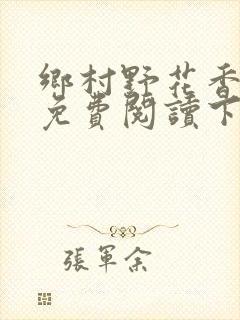 鄉村野花香
免費閱讀下
張軍余